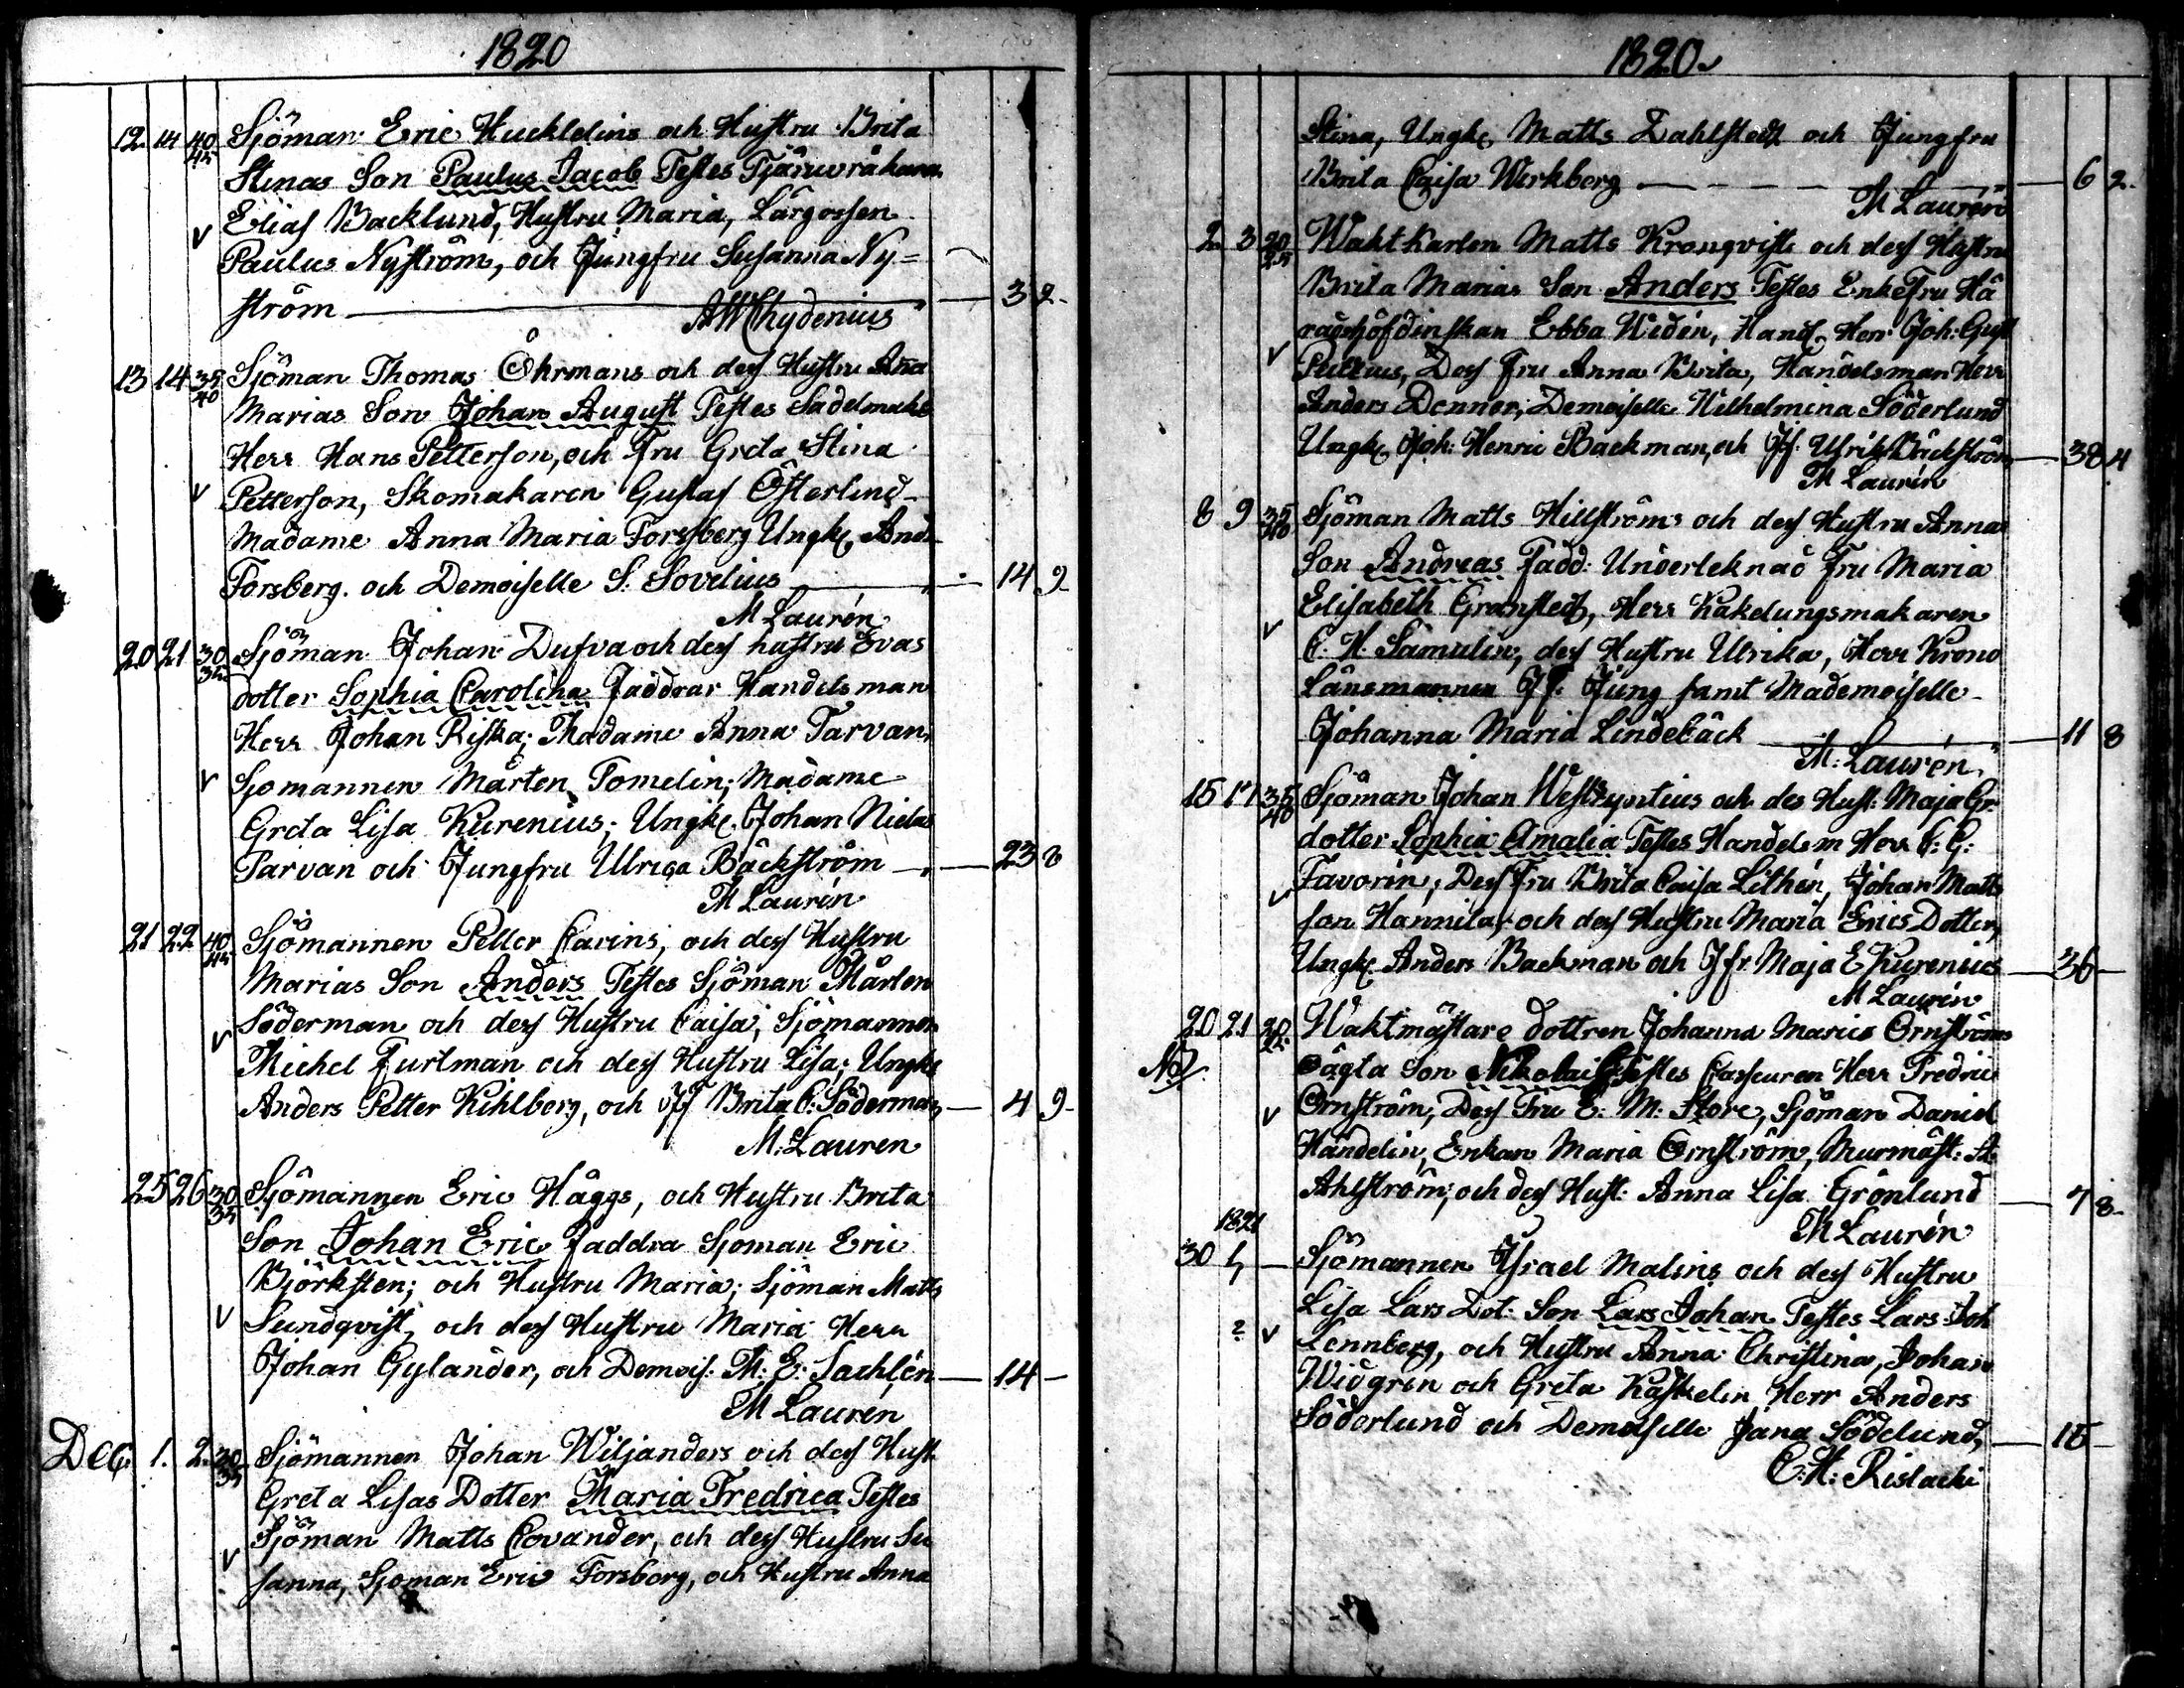 1820
12 14 40 45 Sjöman Eric Hucklelins och Hustru Brita
Stinas Son Paulus Jacob Testes Tjäruvräkaren
Elias Backlund, Hustru Maria, Lärgossen
Paulus Nyström, och Jungfru Susanna Ny=
ström — 3 2
AW Chydenius
13 14 35 40 Sjöman Thomas Öhrmans och dess Hustru Anna
Marias Son Johan August Testes Sadelmak:
Herr Hans Petterson, och Fru Greta Stina
Petterson, Skomakaren Gustaf Österlind
Madame Anna Maria Forssberg Ungk. And.
Forsberg. och Demoiselle S. Sovelius — 14 9
M Laurén
20 21 30 35 Sjöman Johan Dufva och dess hustru Evas
dotter Sophia Carolina Faddrar Handelsman
Herr Johan Riska; Madame Anna Tarvan,
Sjömannen Mårten Tomelin; Madame
Greta Lisa Kurenius; Ungk. Johan Niclas
Parvan och Jungfru Ulrica Bäckström — 23 8
M Laurén
21 22 40 45 Sjömannen Petter Carins, och dess Hustru
Marias Son Anders Testes Sjöman Mårten
Söderman och dess Hustru Caisa, Sjömannen
Michel Furlman och dess Hustru Lisa; Ungk.
Anders Petter Kihlberg, och Jf Brita C. Söderman — 4 9
M. Lauren
25 26 30 35 Sjömannen Eric Häggs, och Hustru Brita
Son Johan Eric Faddra Sjöman Eric
Björksten; och Hustru Maria; Sjöman Matts
Sundqvist, och dess Hustru Maria Herr
Johan Gylander, och Demois: M: E: Sachlén — 14 —
M Laurén
Dec. 1. 2. 30 35 Sjömannen Johan Wiljanders och dess Hust.
Greta Lisas Dotter Maria Fredrica Testes
Sjöman Matts Covander, och dess Hustru Su
sanna, Sjöman Eric Forsborg, och Hustru Anna
1820
Stina, Ungk. Matts Dahlstedt och Jungfru
Brita Caisa Werkberg — 6 2.
M Laurén
2 3 20 25 Wakt Karlen Matts Kronqvists och dess Hustru
Brita Marias Son Anders Testes Enke Fru Hä
radshöfdinskan Ebba Widén, Hand. Herr Joh: Gust
Peltzius, Dess Fru Anna Brita, Handelsman Herr
Anders Donner, Demoiselle Wilhelmina Söderlund
Ungk. Joh: Henric Backman, och Jf. Ulrik: Bäckström — 38 4
M Laurén
8 9 35 40 Sjöman Matts Hillströms och dess Hustru Annas
Son Andreas Fadd: Undertecknad Fru Maria
Elisabeth Granstedt, Herr Kakelungsmakaren
C. H. Samulin, dess Hustru Ulrika, Herr Krono
Länsmannen Jf. Jung samt Mademoiselle
Johanna Maria Lindebäck — 11 8
M. Laurén.
15 17 35 40 Sjöman Johan Westzyntius och des Hust: Maja Gr.
dotter Sophia Amalia Testes Handelsm Herr C: G:
Favorin, Dess Fru Brita Caisa Lithén, Johan Matts
son Hannila, och dess Hustru Maria Erics Dotter,
Ungk. Anders Backman och Jfr. Maja E Kurenius — 36 —
M Laurén
20 21 20 25 Waktmästare dottren Johanna Maria Ornströms
NB oägta Son Nikolai Testes Casseuren Herr Fredric
Ornström, Dess Fru E: M: Store, Sjöman Daniel
Händelin, Enkan Maria Ornström, Murmäst: A.
Ahlström; och dess Hust: Anna Lisa Grönlund — 7 8
M Laurén
1821
30 Sjömannen Israel Malins och dess Hustru
Lisa Lars Dot: Son Lars Johan Testes Lars Joh
Lennberg, och Hustru Anna Christina, Johan
Widgrén och Greta Kaskelin Herr Anders
Söderlund och Demoiselle Jana Södelund, — 15 —
C: H: Rislachi